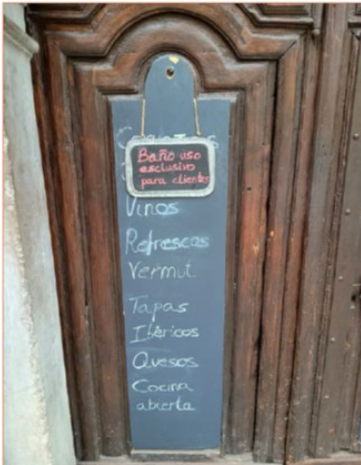 Baño uso
exclusivo
para clientes
Vinos
Refrescos
Vermut
Tapas
Ibéricos
Quesos
Cocina
abierta